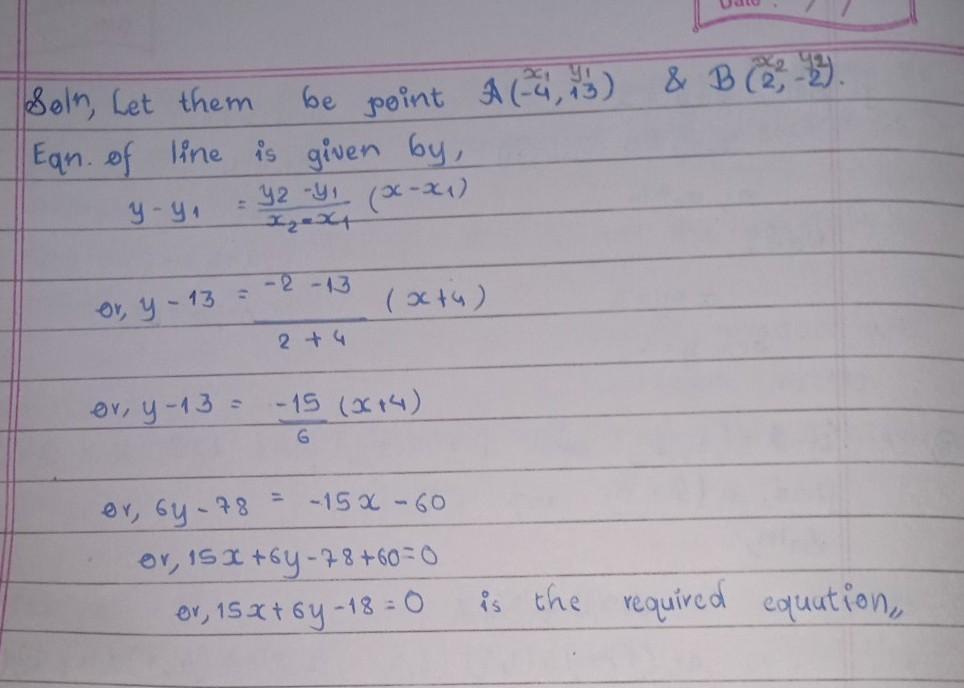 Date : / /
Soln, Let them be point A(-4, 13) & B(2, -2).
x₁ y₁ x₂ y₂
Eqn. of line is given by,
y - y₁ = y₂ - y₁ / x₂ - x₁ (x - x₁)
or, y - 13 = -2 - 13 / 2 + 4 (x + 4)
or, y - 13 = -15 / 6 (x + 4)
or, 6y - 78 = -15x - 60
or, 15x + 6y - 78 + 60 = 0
or, 15x + 6y - 18 = 0 is the required equation,,